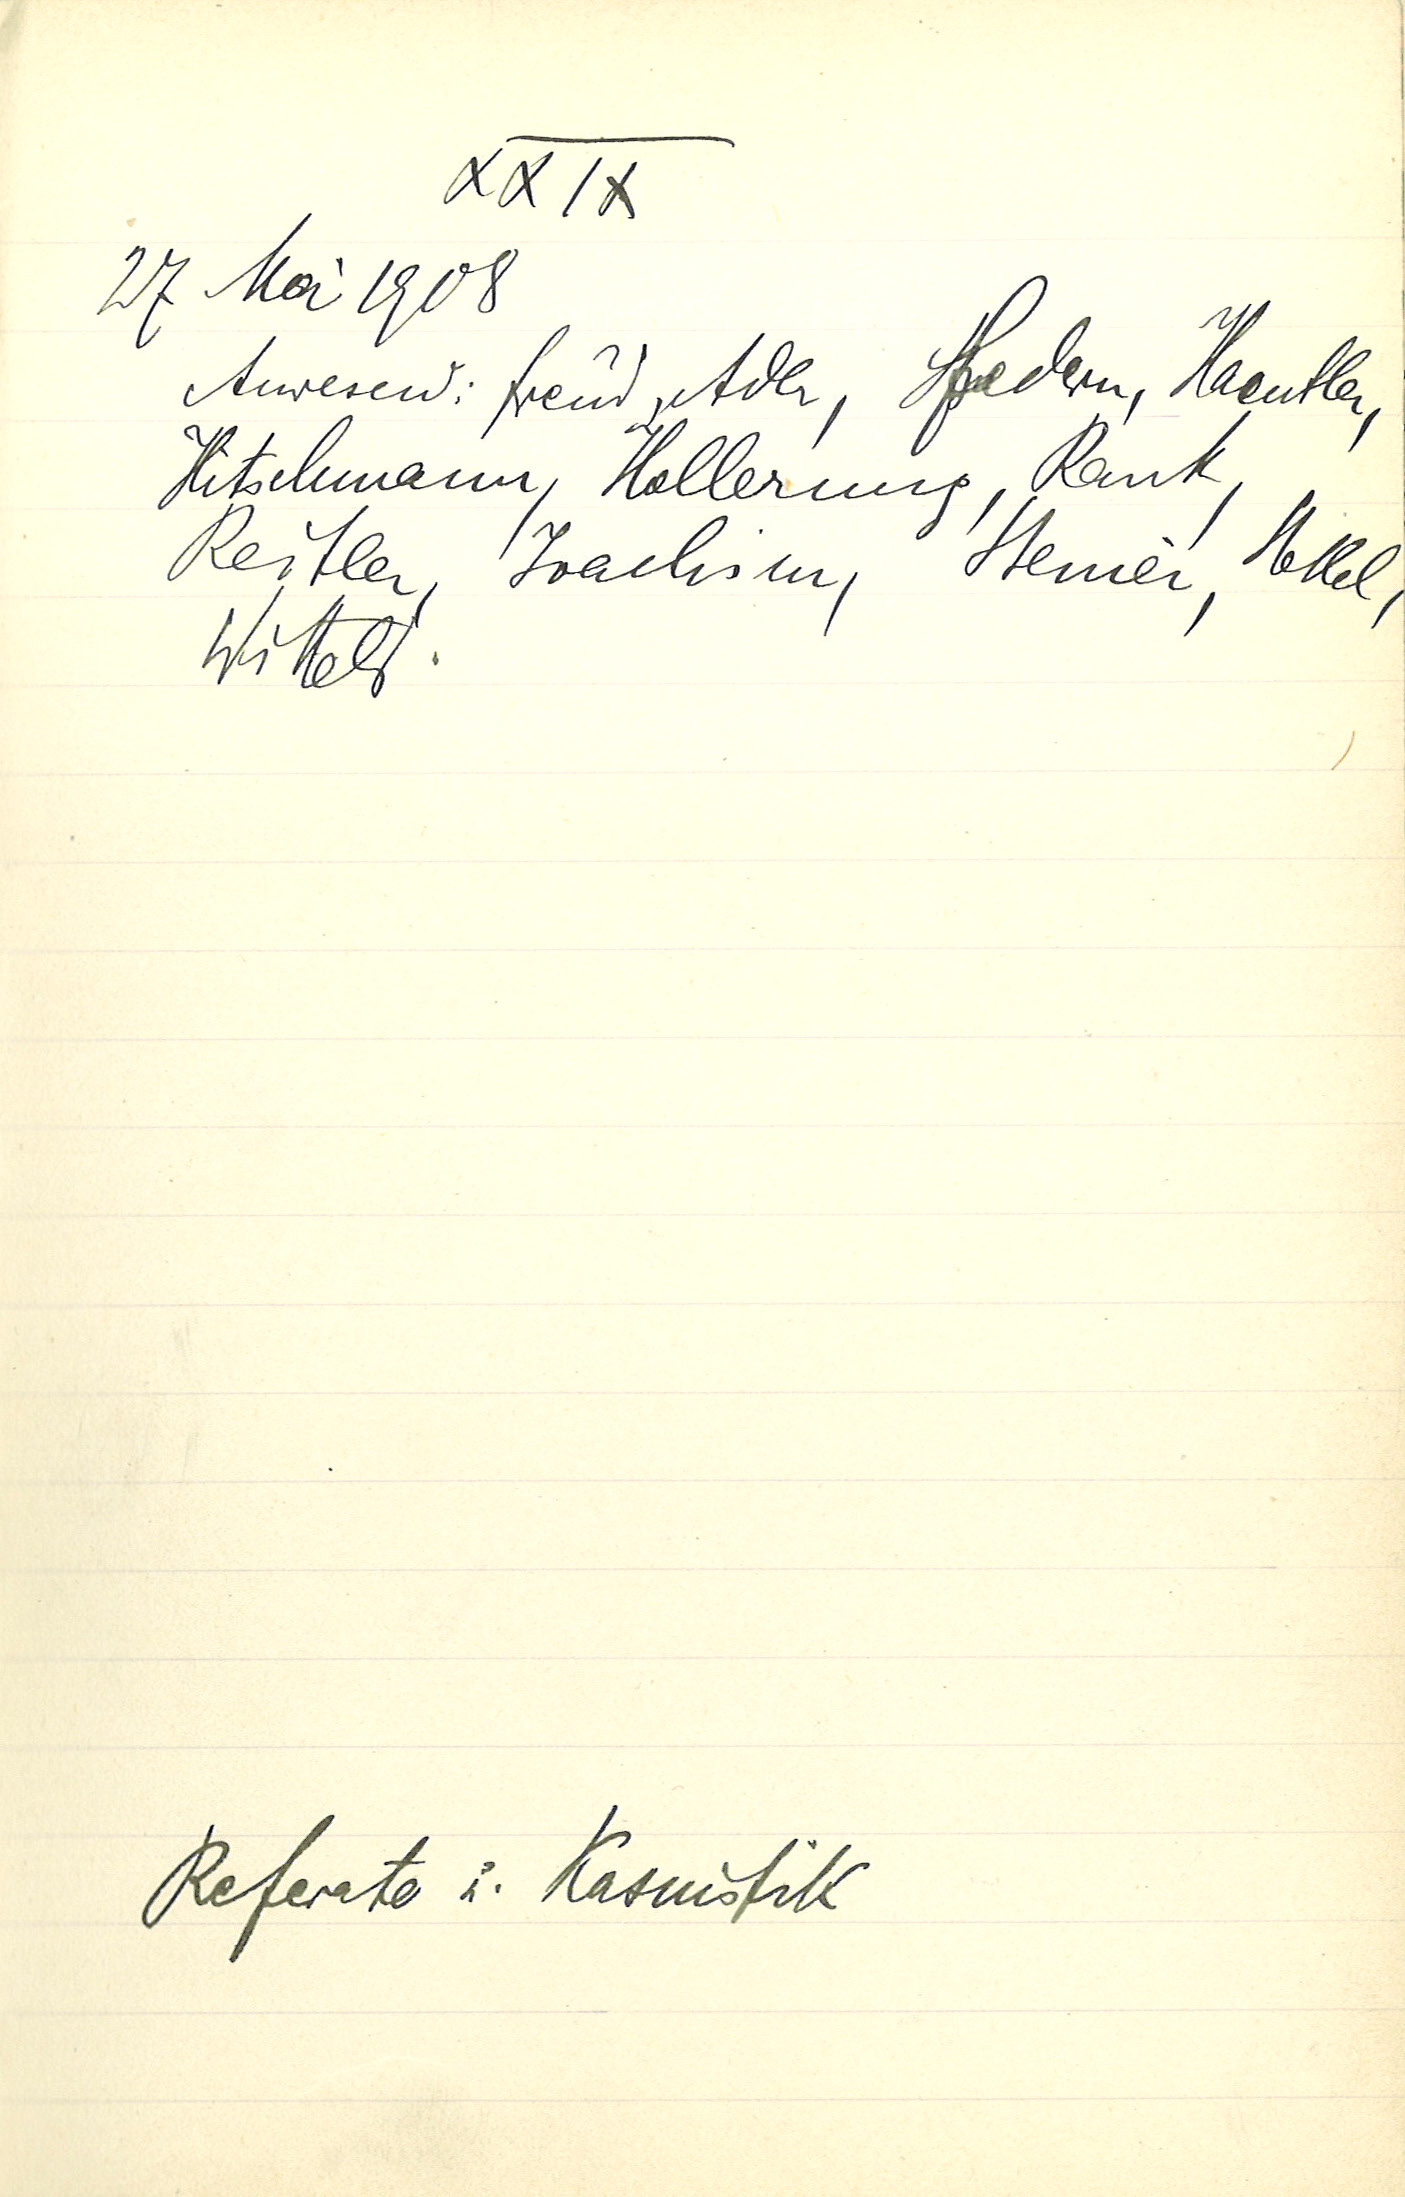 XXIX
27 Mai 1908
Anwesend: Freud, Adler, Federn, Haeutler,
Hitschmann, Hollerung, Rank,
Reitler, Joachim, Steiner, Stekel,
Wittels.
Referate u. Kasuistik